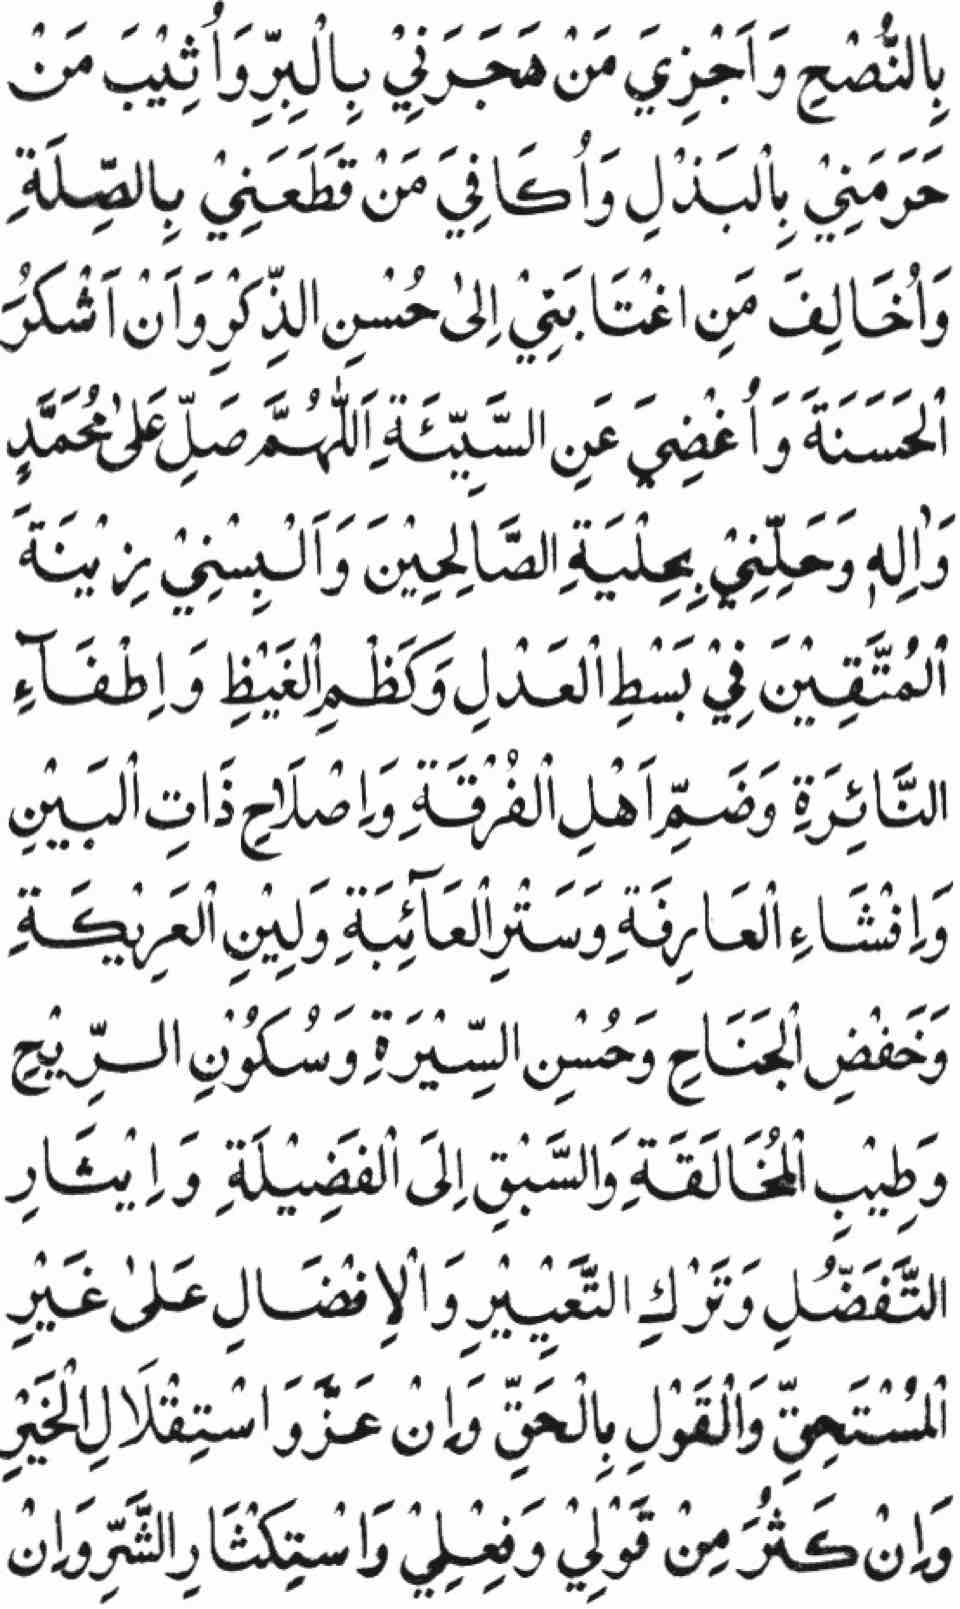 بِالنُّصْحِ وَاَجْزِيَ مَنْ هَجَرَنِيْ بِالْبِرِّ وَاُثِيْبَ مَنْ
حَرَمَنِيْ بِالْبَذْلِ وَاُكَافِيَ مَنْ قَطَعَنِيْ بِالصِّلَةِ
وَاُخَالِفَ مَنِ اغْتَابَنِيْ اِلىٰ حُسْنِ الذِّكْرِ وَاَنْ اَشْكُرَ
الْحَسَنَةَ وَاُغْضِيَ عَنِ السَّيِّئَةِ اَللّٰهُمَّ صَلِّ عَلىٰ مُحَمَّدٍ
وَاٰلِهٖ وَحَلِّنِيْ بِحِلْيَةِ الصَّالِحِيْنَ وَاَلْبِسْنِيْ زِيْنَةَ
الْمُتَّقِيْنَ فِيْ بَسْطِ الْعَدْلِ وَكَظْمِ الْغَيْظِ وَاِطْفَآءِ
النَّائِرَةِ وَضَمِّ اَهْلِ الْفُرْقَةِ وَاِصْلَاحِ ذَاتِ الْبَيْنِ
وَاِفْشَاءِ الْعَارِفَةِ وَسَتْرِ الْعَآئِبَةِ وَلِيْنِ الْعَرِيْكَةِ
وَخَفْضِ الْجَنَاحِ وَحُسْنِ السِّيْرَةِ وَسُكُوْنِ الرِّيْحِ
وَطِيْبِ الْمُخَالَقَةِ وَالسَّبْقِ اِلَى الْفَضِيْلَةِ وَاِيْثَارِ
التَّفَضُّلِ وَتَرْكِ التَّعْيِيْرِ وَالْاِفْضَالِ عَلىٰ غَيْرِ
الْمُسْتَحِقِّ وَالْقَوْلِ بِالْحَقِّ وَاِنْ عَزَّ وَاسْتِقْلَالِ الْخَيْرِ
وَاِنْ كَثُرَ مِنْ قَوْلِيْ وَفِعْلِيْ وَاسْتِكْثَارِ الشَّرِّ وَاِنْ